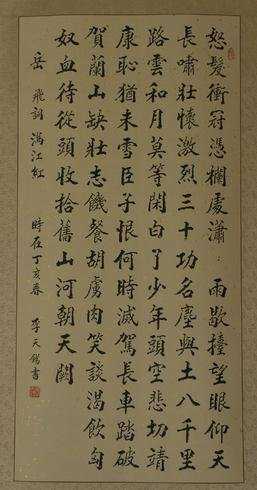 怒髮衝冠憑欄處瀟：雨歇擡望眼仰天
長嘯壯懷激烈三十功名塵與土八千里
路雲和月莫等閑白了少年頭空悲切靖
康恥猶未雪臣子恨何時滅駕長車踏破
賀蘭山缺壯志饑餐胡虜肉笑談渴飲匈
奴血待從頭收拾舊山河朝天闕
岳飛詞滿江紅 時在丁亥春 李天錫書